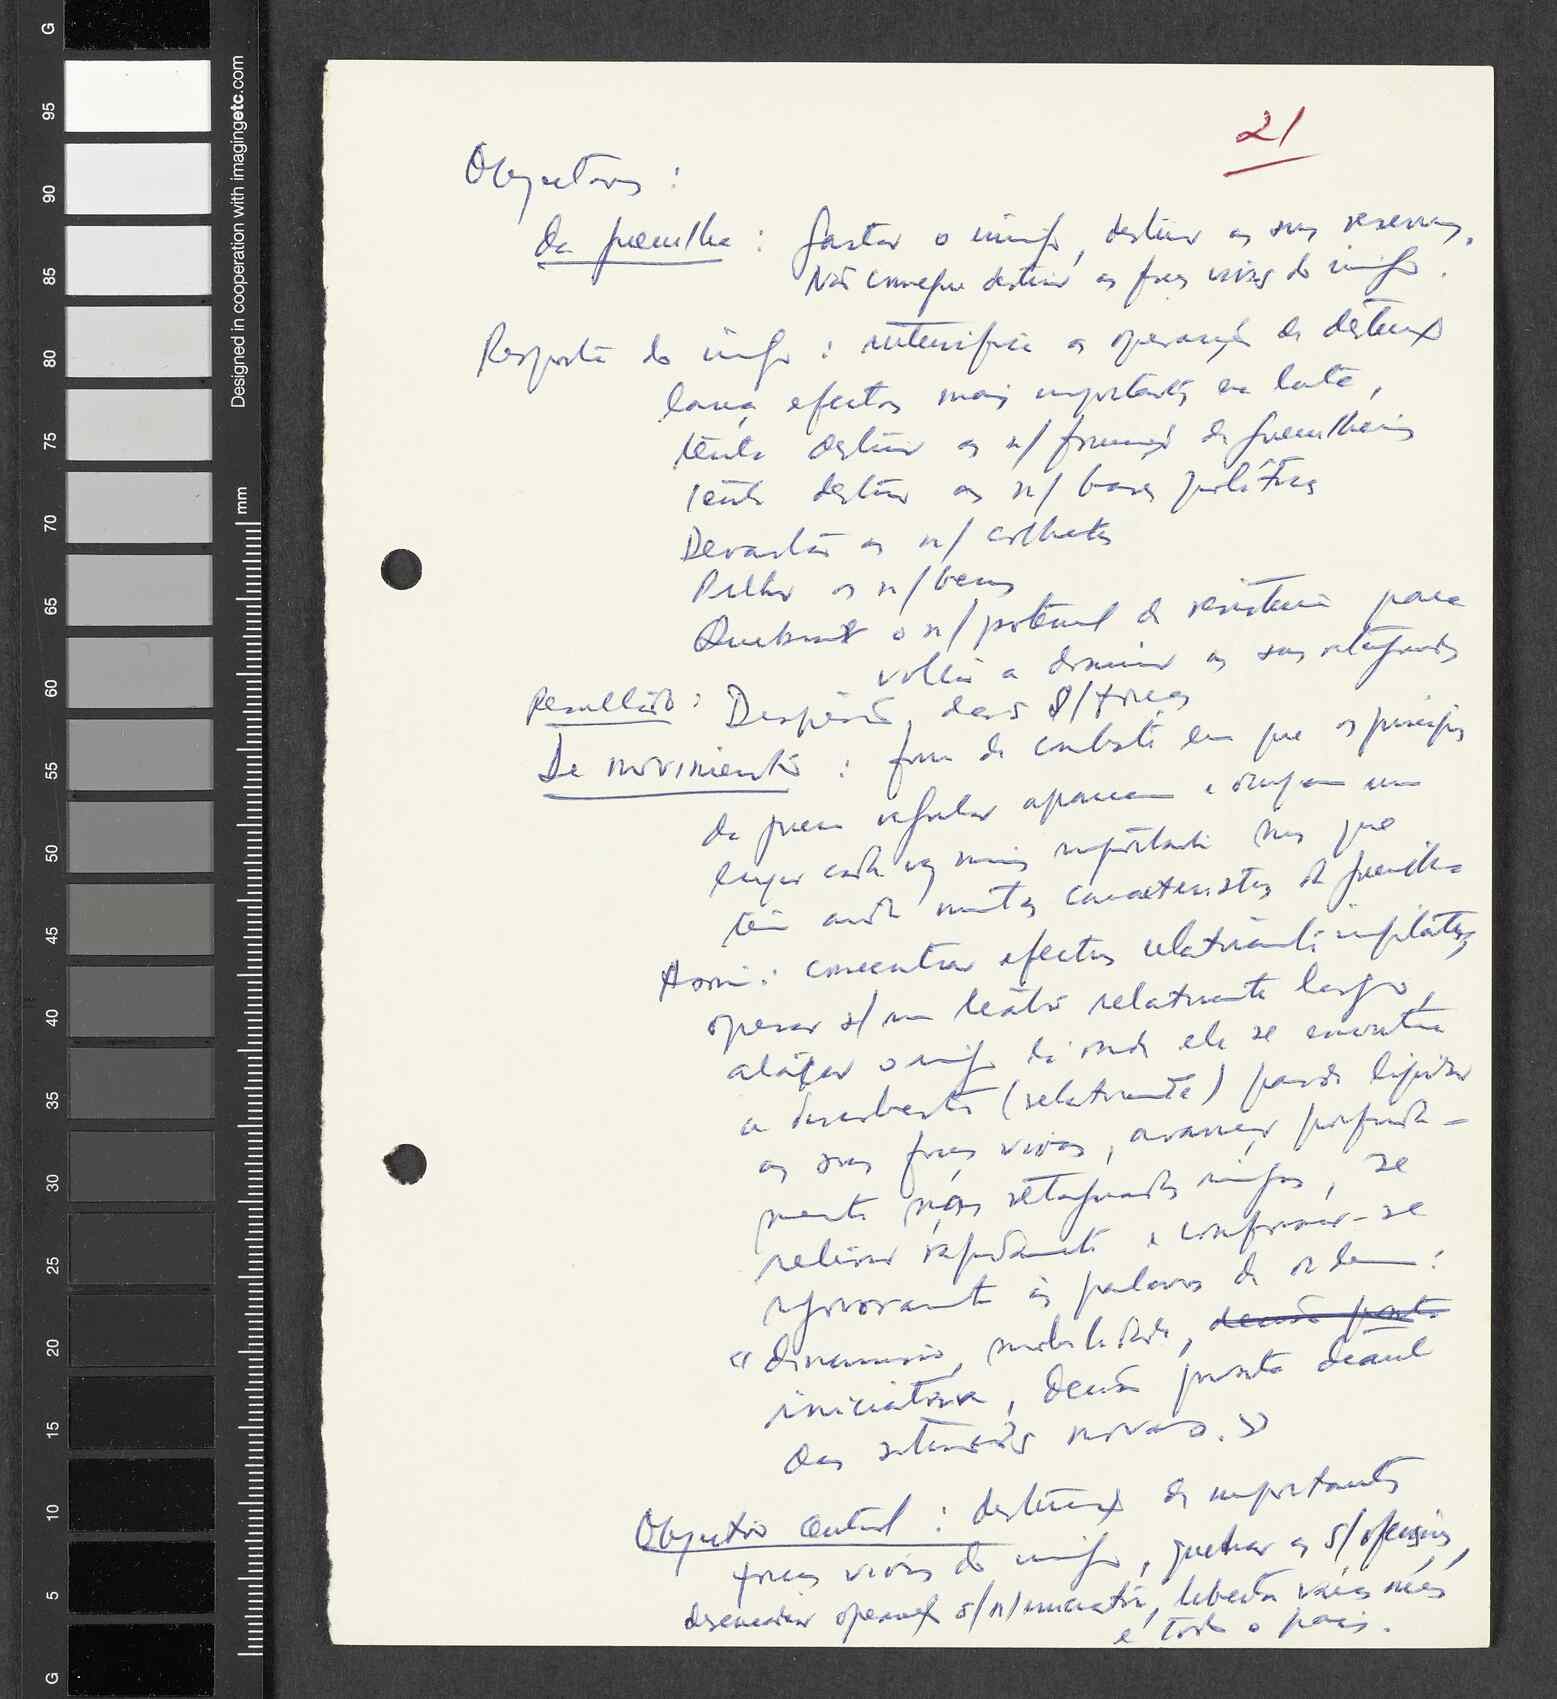 21
Objectivos :
da guerrilha : Gastar o inimigo, destruir as suas reservas.
Não consegue destruir as forças vivas do inimigo.
Resposta do inimigo : intensificar as operações de destruição
lança efectivos mais importantes na luta,
tenta destruir as n/ formações de guerrilheiros
tenta destruir as n/ bases políticas
Devastar as n/ colheitas
Pilhar os n/ bens
Quebrar o n/ potencial de resistência para
voltar a dominar as suas retaguardas
Resultado : Dispersão, das s/ forças
De movimento : forma de combate em que os princípios
da guerra regular aparecem e ocupam um
lugar cada vez mais importante mas que
tem ainda muitas características da guerrilha
Assim : concentrar efectivos relativamente importantes,
operar s/ um teatro relativamente largo,
atacar o inimigo lá onde ele se encontra
a descoberto (relativamente) para liquidar
as suas forças vivas, avançar profunda-
mente nas retaguardas inimigas, se
retirar rapidamente e conformar-se
rigorosamente às palavras de ordem :
« dinamismo, mobilidade, decisão pronta
iniciativa, decisão pronta diante
das situações novas. »
Objectivo central : destruição de importantes
forças vivas do inimigo, quebrar as s/ ofensivas,
desencadear operações s/ n/ iniciativa, libertar várias
e todo o país.
G
95
90
85
80
75
70
65
60
55
50
45
40
35
30
25
20
15
10
5
G
Designed in cooperation with imagingetc.com
mm